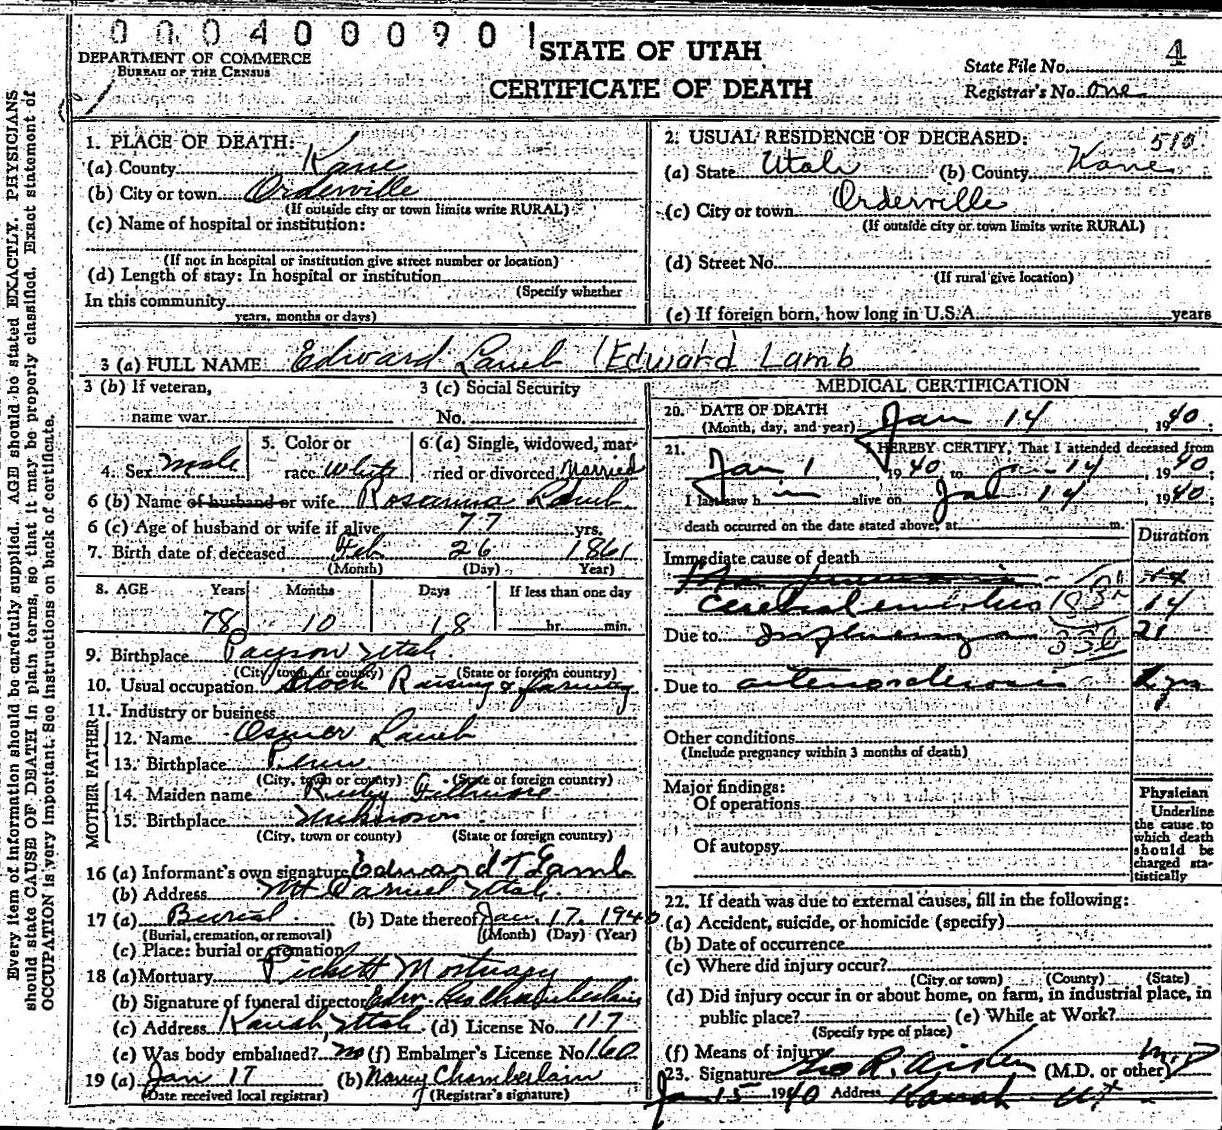 0004000901
DEPARTMENT OF COMMERCE
BUREAU OF THE CENSUS
STATE OF UTAH
CERTIFICATE OF DEATH
State File No. 4
Registrar's No. one
Every item of information should be carefully supplied. AGE should be stated EXACTLY. PHYSICIANS
should state CAUSE OF DEATH in plain terms, so that it may be properly classified. Exact statement of
OCCUPATION is very important. See instructions on back of certificate.
1. PLACE OF DEATH:
(a) County Kane
(b) City or town Orderville
(If outside city or town limits write RURAL)
(c) Name of hospital or institution:
(If not in hospital or institution give street number or location)
(d) Length of stay: In hospital or institution
(Specify whether
In this community
years, months or days)
2. USUAL RESIDENCE OF DECEASED: 510
(a) State Utah (b) County Kane
(c) City or town Orderville
(If outside city or town limits write RURAL)
(d) Street No.
(If rural give location)
(e) If foreign born, how long in U.S.A. years
3 (a) FULL NAME Edward Lamb (Edward Lamb
3 (b) If veteran, name war
3 (c) Social Security No.
4. Sex Male
5. Color or race White
6 (a) Single, widowed, married or divorced Married
6 (b) Name of husband or wife Rosanna Lamb
6 (c) Age of husband or wife if alive 77 yrs.
7. Birth date of deceased Feb 26 1861
(Month) (Day) (Year)
8. AGE Years Months Days If less than one day
78 10 18 hr. min.
9. Birthplace Payson Utah
(City, town or county) (State or foreign country)
10. Usual occupation Stock Raising & farming
11. Industry or business
FATHER
12. Name Lamb
13. Birthplace
(City, town or county) (State or foreign country)
MOTHER
14. Maiden name
15. Birthplace Unknown
(City, town or county) (State or foreign country)
16 (a) Informant's own signature Edward T Lamb
(b) Address Mt Carmel Utah
17 (a) Burial (b) Date thereof Jan. 17 1940
(Burial, cremation, or removal) (Month) (Day) (Year)
(c) Place: burial or cremation
18 (a) Mortuary Pickett Mortuary
(b) Signature of funeral director Chamberlain
(c) Address Kanab, Utah (d) License No. 117
(e) Was body embalmed? no (f) Embalmer's License No. 160
19 (a) Jan 17 (b) Nancy Chamberlain
(Date received local registrar) (Registrar's signature)
MEDICAL CERTIFICATION
20. DATE OF DEATH Jan 14, 1940;
(Month, day, and year)
21. I HEREBY CERTIFY, That I attended deceased from
Jan 1, 1940 to Jan 14, 1940;
I last saw him alive on Jan 14, 1940;
death occurred on the date stated above, at m.
Duration
Immediate cause of death
14
Due to Influenza 21
Due to arteriosclerosis yrs
Other conditions
(Include pregnancy within 3 months of death)
Major findings:
Of operations
Of autopsy
Physician
Underline
the cause to
which death
should be
charged sta-
tistically
22. If death was due to external causes, fill in the following:
(a) Accident, suicide, or homicide (specify)
(b) Date of occurrence
(c) Where did injury occur?
(City or town) (County) (State)
(d) Did injury occur in or about home, on farm, in industrial place, in
public place? (e) While at Work?
(Specify type of place)
(f) Means of injury
23. Signature Geo R. Aiken (M.D. or other) M.D
Jan 15 1940 Address Kanab Ut